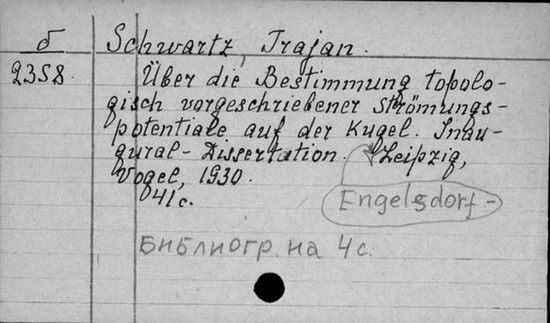 б Schwartz, Trajan.
2358. Über die Bestimmung topolo-
gisch vorgeschriebener Strömungs-
potentiale auf der Kugel. Inau-
gural-Dissertation. Leipzig,
Vogel, 1930.
41c. Engelsdorf-
Библиогр. на 4 с.